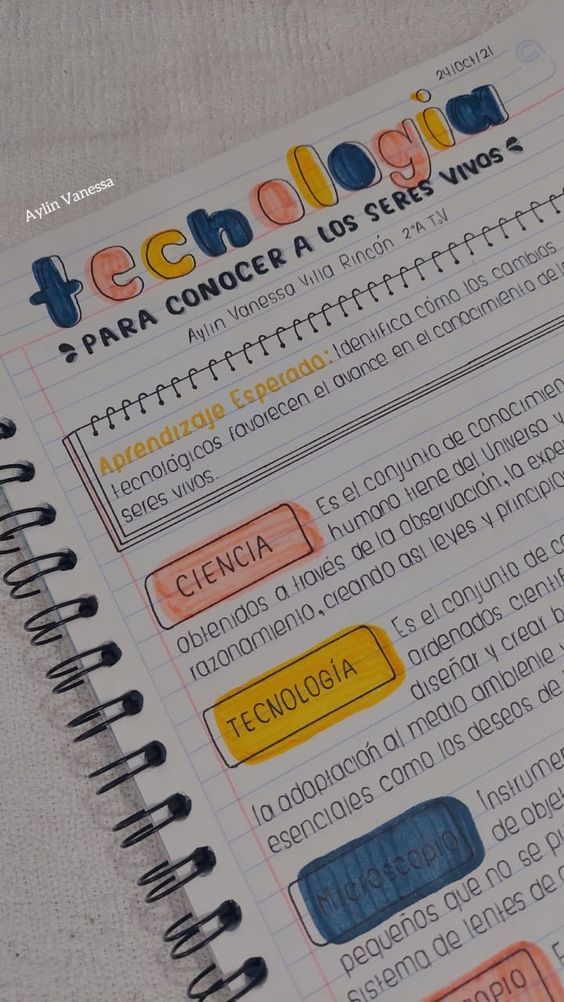 24/Oct/21
Aylin Vanessa
techologia
PARA CONOCER A LOS SERES VIVOS
Aylin Vanessa Villa Rincón 2°A T.V
Aprendizaje Esperado: Identifica cómo los cambios
tecnológicos favorecen el avance en el conocimiento de
seres vivos.
CIENCIA
Es el conjunto de
humano tiene del Universo y
obtenidos a través de la observación, la
razonamiento, creando asi leyes y
TECNOLOGÍA
Es el conjunto de
ordenados
diseñar y crear
la adaptación al medio ambiente
esenciales como los deseos de
MICROSCOPIO
de
pequeños que no se
sistema de lentes de